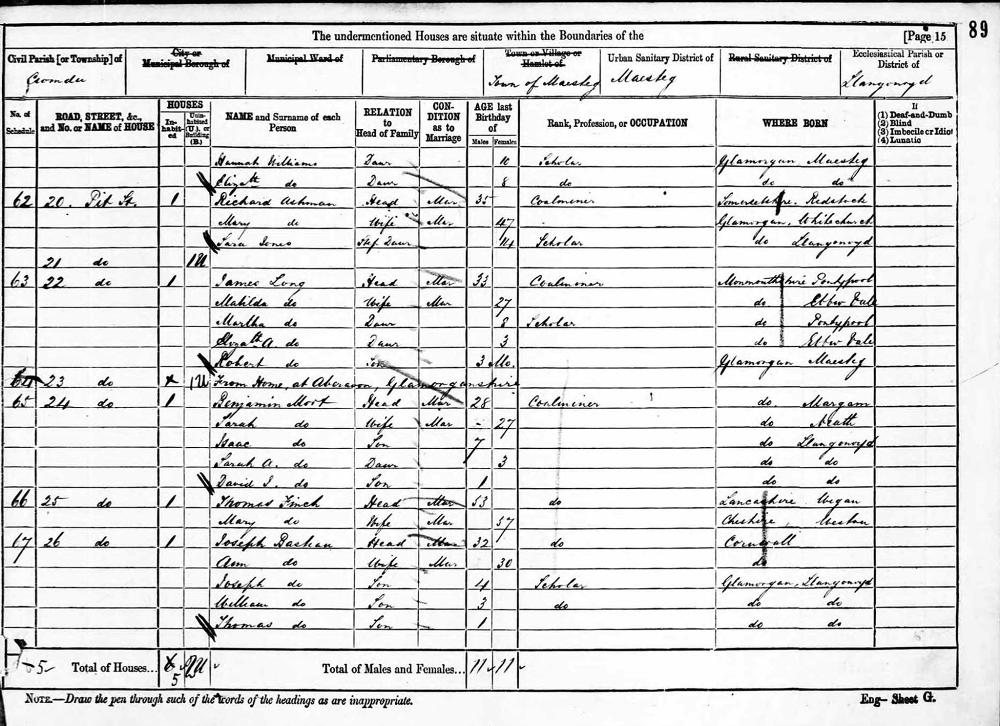 The undermentioned Houses are situate within the Boundaries of the [Page 15 89
Civil Parish [or Township] of City or Municipal Borough of Municipal Ward of Parliamentary Borough of Town or Village or Hamlet of Urban Sanitary District of Rural Sanitary District of Ecclesiastical Parish or District of
Cwmdu Town of Maesteg Maesteg Llangonoyd
No. of Schedule ROAD, STREET, &c., and No. or NAME of HOUSE HOUSES In-habit-ed Unin-habited (U.), or Building (B.) NAME and Surname of each Person RELATION to Head of Family CON-DITION as to Marriage AGE last Birthday of Males Females Rank, Profession, or OCCUPATION WHERE BORN If (1) Deaf-and-Dumb (2) Blind (3) Imbecile or Idiot (4) Lunatic
Hannah Williams Daur 10 Scholar Glamorgan Maesteg
Elizath do Daur 8 do do do
62 20. Pit St. 1 Richard Ashman Head Mar 35 Coalminer Somersetshire. Redstock
Mary do Wife Mar 47 Glamorgan, Whitechurch
Sara Jones Step Daur 14 Scholar do Llangonoyd
21 do 1U
63 22 do 1 James Long Head Mar 33 Coalminer Monmouthshire Pontypool
Matilda do Wife Mar 27 do Ebbw Vale
Martha do Daur 8 Scholar do Pontypool
Elizath A. do Daur 3 do Ebbw Vale
Robert do Son 3 Mo. Glamorgan Maesteg
64 23 do 1U From Home, at Aberavon, Glamorganshire
65 24 do 1 Benjamin Mort Head Mar 28 Coalminer do Margam
Sarah do Wife Mar - 27 do Neath
Isaac do Son 7 do Llangonoyd
Sarah A. do Daur 3 do do
David J. do Son 1 do do
66 25 do 1 Thomas Finch Head Mar 53 do Lancashire Wegan
Mary do Wife Mar 57 Cheshire, Weston
67 26 do 1 Joseph Bastian Head Mar 32 do Cornwall
Ann do Wife Mar 30 do
Joseph do Son 4 Scholar Glamorgan, Llangonoyd
William do Son 3 do do do
Thomas do Son 1 do do
5 Total of Houses... 5 Total of Males and Females... 11 11
NOTE.—Draw the pen through such of the words of the headings as are inappropriate. Eng— Sheet G.